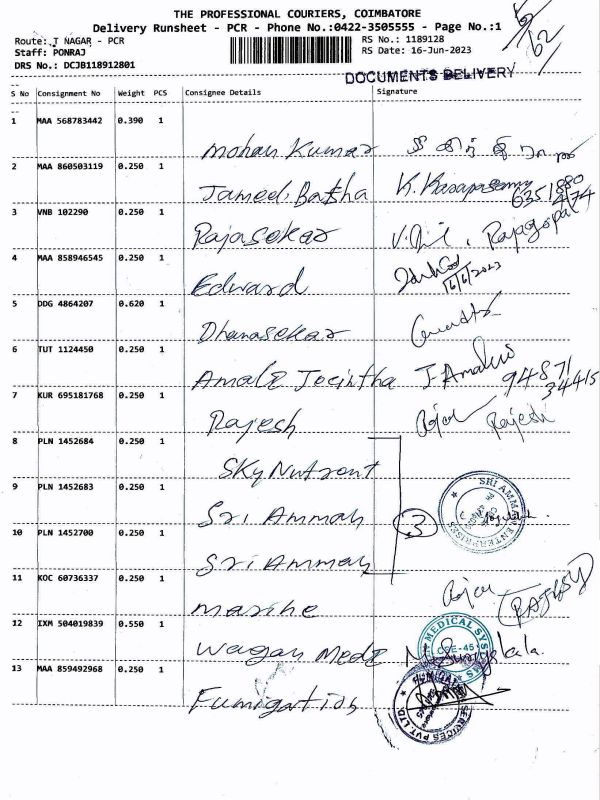 THE PROFESSIONAL COURIERS, COIMBATORE
Delivery Runsheet - PCR - Phone No.:0422-3505555 - Page No.:1
Route: T NAGAR - PCR
RS No.: 1189128
Staff: PONRAJ
RS Date: 16-Jun-2023
DRS No.: DCJB118912801
62
DOCUMENTS DELIVERY
S No Consignment No Weight PCS Consignee Details Signature
1 MAA 568783442 0.390 1
Mohan Kumar
2 MAA 860503119 0.250 1
Jameel Batsha K. 6351880
474
3 VNB 102290 0.250 1
Rajasekar Rajagopal
4 MAA 858946545 0.250 1
Edward 16/6/2023
5 DDG 4864207 0.620 1
Dhanasekar
6 TUT 1124450 0.250 1
Amala Jocintha J. 94871
34415
7 KUR 695181768 0.250 1
Rajesh Rajesh
8 PLN 1452684 0.250 1
Sky Nutrent
9 PLN 1452683 0.250 1
Sri Amman 3 SRI AMMAN ENTERPRISES
10 PLN 1452700 0.250 1
Sri Amman
11 KOC 60736337 0.250 1
Marine
12 IXM 504019839 0.550 1
MEDICAL SYSTEMS
CBE-45
13 MAA 859492968 0.250 1
SERVICES PVT. LTD.